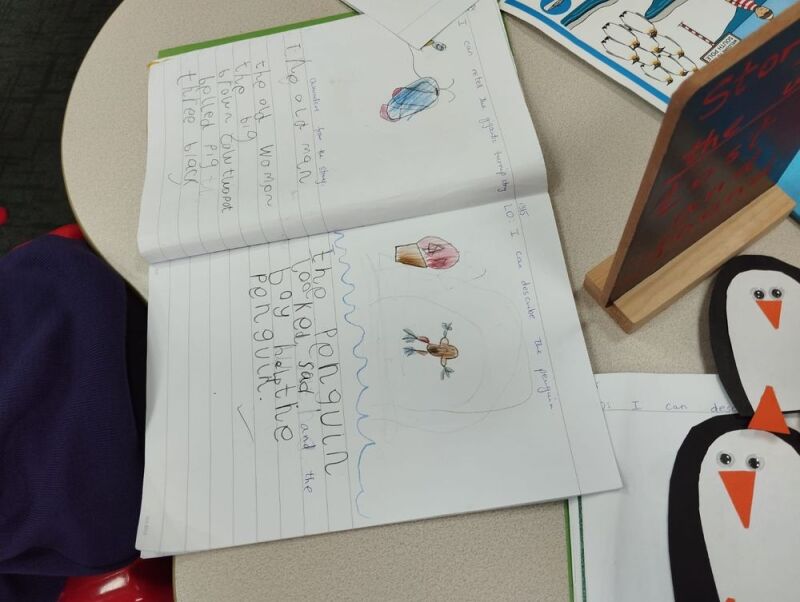 I can retell the gigantic turnip story
characters from the story.
The old man
the old woman
the big
brown cow two pot
bellied pig
three black
195
LO: I can describe the penguin
the penguin
looked sad and the
boy help the
penguin.
LO: I can des
Story
the
Lost
and